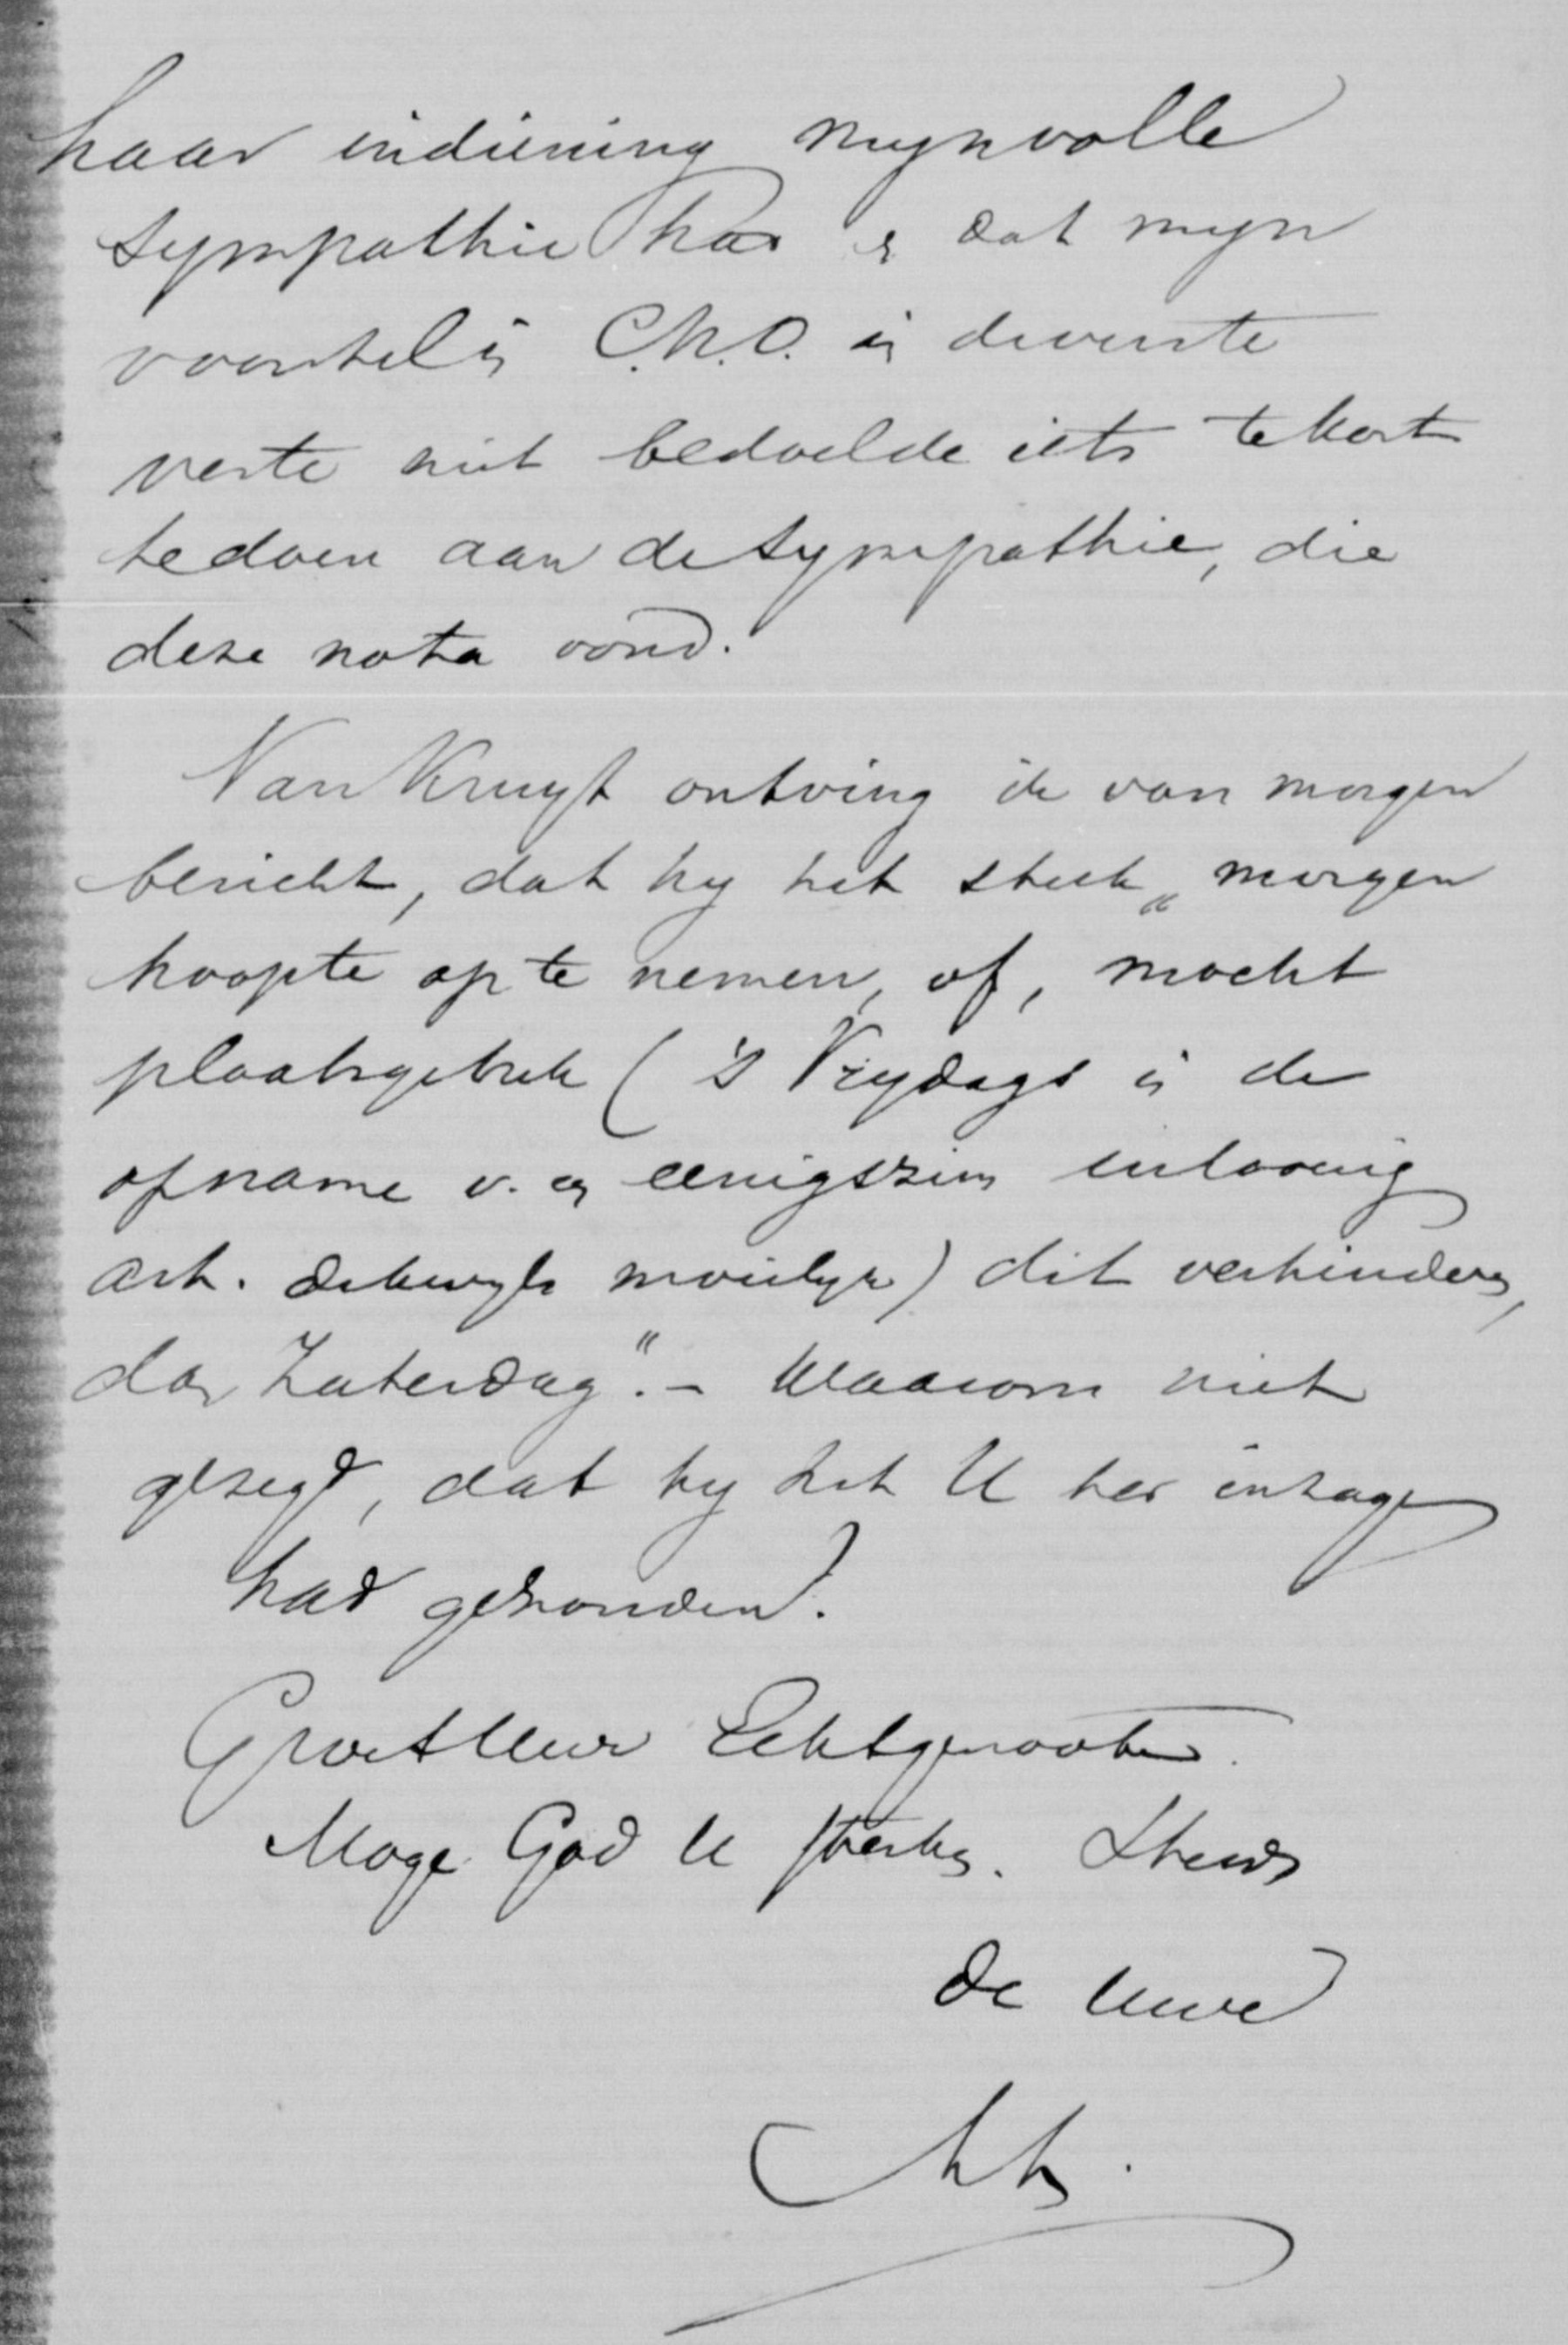 haar indiening mijn volle
sympathie had en dat mijn
voorstel in C.M.O. in de verste
verte niet bedoelde iets te kort
te doen aan de sympathie, die
deze nota vond.
Van Kruyt ontving ik van morgen
bericht, dat hij het stuk „morgen
hoopte op te nemen, of, mocht
plaatsgebrek ('s Vrijdags is de
opname v. een eenigszins
art. dikwijls moeielijk) dit verhinderen,
dan Zaterdag". – Waarom niet
gezegd, dat hij het U ter inzage
had gezonden?
Groet Uwe Echtgenoote.
Moge God U sterken. Steeds
de Uwe